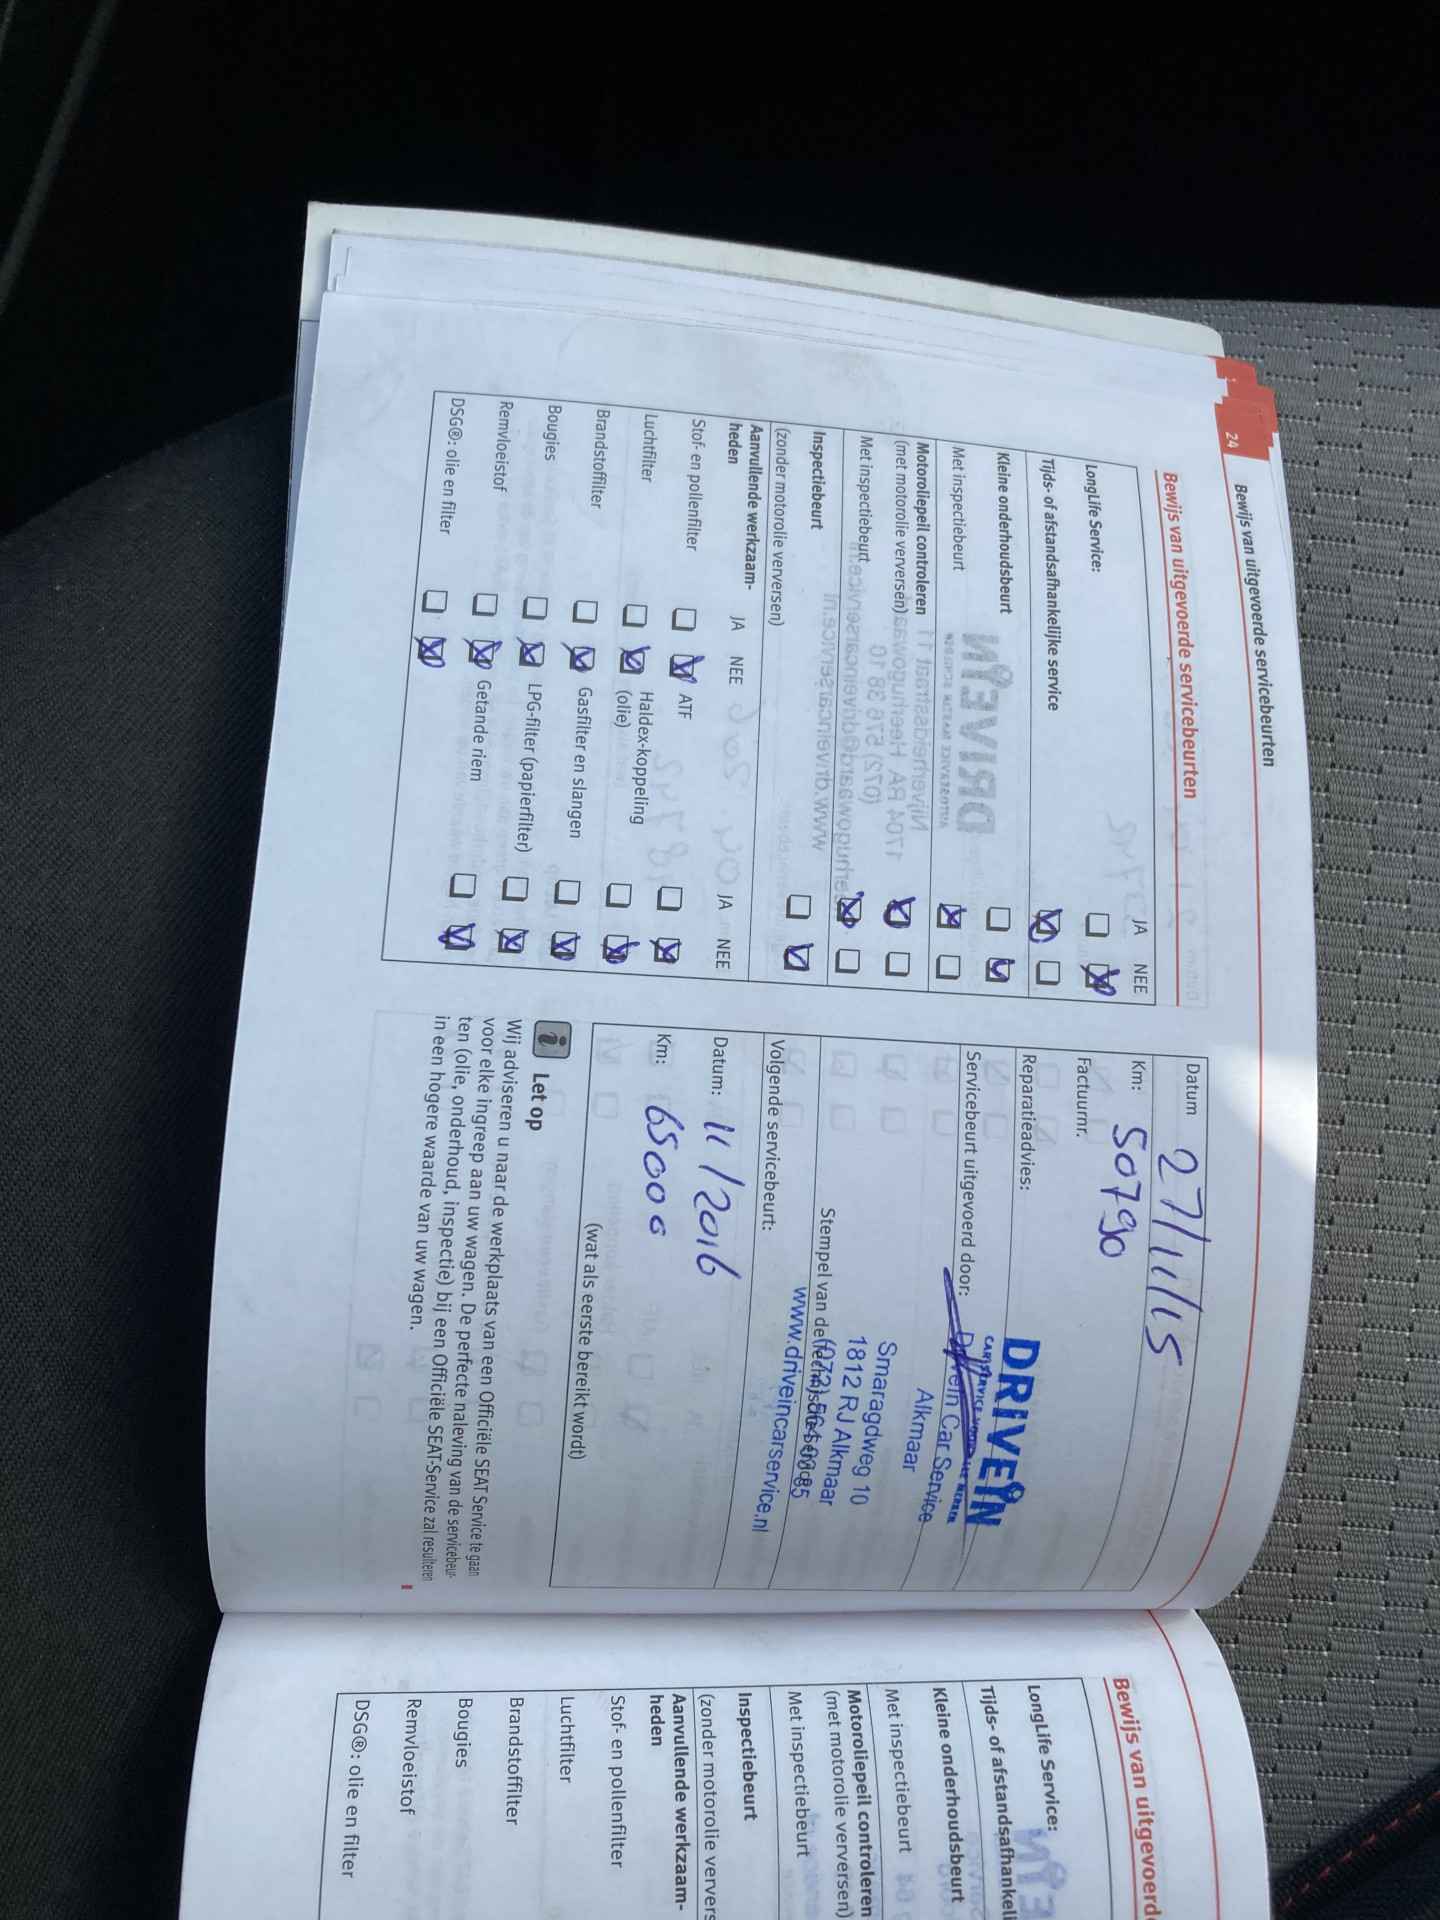 24
Bewijs van uitgevoerde servicebeurten
Bewijs van uitgevoerde servicebeurten
JA NEE
LongLife Service:
Tijds- of afstandsafhankelijke service
Kleine onderhoudsbeurt
Met inspectiebeurt
Motoroliepeil controleren
(met motorolie verversen)
Met inspectiebeurt
Inspectiebeurt
(zonder motorolie verversen)
Aanvullende werkzaam-
heden
JA NEE
JA NEE
Stof- en pollenfilter
ATF
Luchtfilter
Haldex-koppeling
(olie)
Brandstoffilter
Gasfilter en slangen
Bougies
LPG-filter (papierfilter)
Remvloeistof
Getande riem
DSG®: olie en filter
Datum 27/11/15
Km: 50790
Factuurnr.
Reparatieadvies:
Servicebeurt uitgevoerd door:
DRIVEIN
Car Service
Alkmaar
Smaragdweg 10
1812 RJ Alkmaar
Stempel van de technische service
www.driveincarservice.nl
Volgende servicebeurt:
Datum: 11/2016
Km: 65000
(wat als eerste bereikt wordt)
i Let op
Wij adviseren u naar de werkplaats van een Officiële SEAT Service te gaan
voor elke ingreep aan uw wagen. De perfecte naleving van de servicebeur-
ten (olie, onderhoud, inspectie) bij een Officiële SEAT-Service zal resulteren
in een hogere waarde van uw wagen.
Bewijs van uitgevoerd
LongLife Service:
Tijds- of afstandsafhankeli
Kleine onderhoudsbeurt
Met inspectiebeurt
Motoroliepeil controleren
(met motorolie verversen)
Met inspectiebeurt
Inspectiebeurt
(zonder motorolie ververs
Aanvullende werkzaam-
heden
Stof- en pollenfilter
Luchtfilter
Brandstoffilter
Bougies
Remvloeistof
DSG®: olie en filter